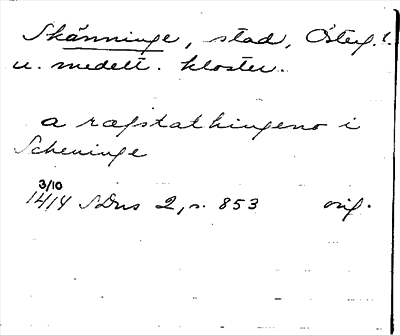 Skänninge, stad, Österg.l.
u. medelt. kloster.
a ræfstathingeno i
Scheninge
3/10
1414 SDns 2, s. 853 orig.